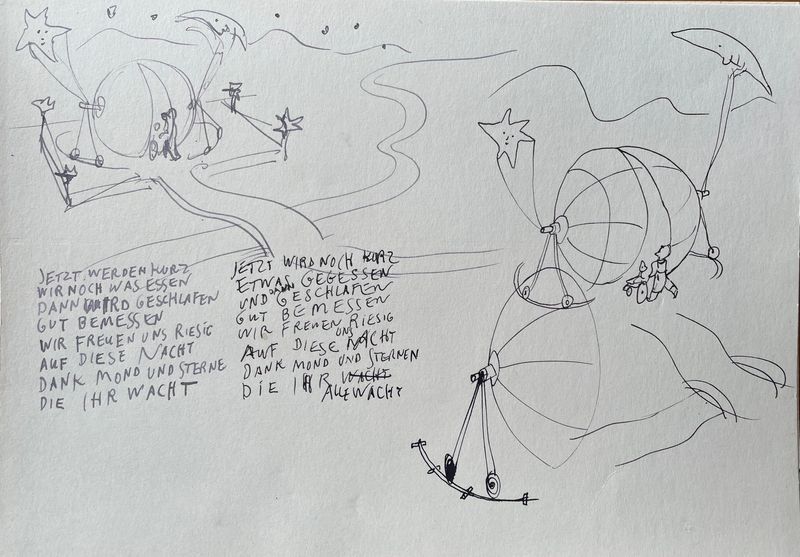 JETZT WERDEN KURZ
WIR NOCH WAS ESSEN
DANN WIRD GESCHLAFEN
GUT BEMESSEN
WIR FREUEN UNS RIESIG
AUF DIESE NACHT
DANK MOND UND STERNE
DIE IHR WACHT
JETZT WIRD NOCH KURZ
ETWAS GEGESSEN
UND DANN GESCHLAFEN
GUT BEMESSEN
WIR FREUEN UNS RIESIG
AUF DIESE NACHT
DANK MOND UND STERNEN
DIE IHR WACHT
ALLE WACHT